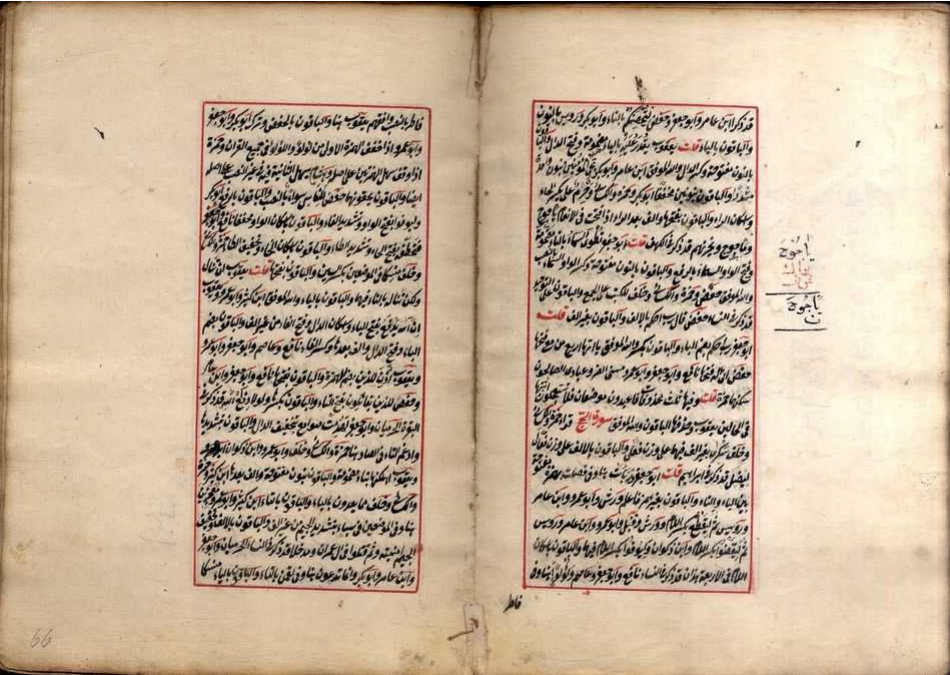 قد ذكر ابن عامر وابو جعفر وحفص لتحصنكم بالتاء وابو بكر ورويس بالنون
والباقون بالياء قلت يعقوب يقدر عليه بالياء مضمومة وفتح الدال والباقون
بالنون مفتوحة وكسر الدال والله الموفق ابن عامر وابو بكر نجي المؤمنين بنون
مشددا والباقون بنونين مخففا ابو بكر وحمزة والكسائي وحرم على بكسر الحاء
واسكان الراء والباقون بفتحها والف بعد الراء اذا فتحت في الانعام ياجوج
وماجوج وغيرهم قد ذكر في الكهف قلت ابو جعفر تطوى السماء بالتاء مضمومة
وفتح الواو السماء بالرفع والباقون بالنون مفتوحة وكسر الواو السماء بالنصب
والله الموفق حفص وحمزة والكسائي وخلف للكتب على الجمع والباقون على التوحيد
قد ذكر في النساء حفص قال رب احكم بالالف والباقون بغير الف قلت
ابو جعفر رب احكم بضم الباء والباقون بكسرها والله الموفق ياآتها اربع من معي فتحها
حفص اني اله فتحها نافع وابو جعفر وابو عمرو مسني الضر وعبادي الصالحون
سكنها حمزة قلت وفيها ثلث محذوفات فاعبدون موضعان فلا تستعجلون اثبتها
في الحالين يعقوب وحذفها الباقون والله الموفق سورة الحج قد ذكر حمزة والكسائي
وخلف سكرى بغير الف فيهما على وزن فعلى والباقون بالالف على وزن فعالى
ليضل قد ذكر في ابراهيم قلت ابو جعفر وربأت هنا وفي فصلت بهمزة مفتوحة
بين الباء والتاء والباقون بغير همز فاعلم ورش وابو عمرو وابن عامر
ورويس ثم ليقطع بكسر اللام وورش وقنبل وابو عمرو وابن عامر ورويس
ثم ليقضوا بكسر اللام وابن ذكوان وليوفوا بكسر اللام فيهما والباقون باسكان
اللام في الاربعة هذان قد ذكر في النساء نافع وابو جعفر وعاصم ولؤلؤا هنا وفي
فاطر
ياجوج
ناجوج
فاطر بالنصب وافقهم يعقوب هنا والباقون بالخفض وترك ابو بكر وابو جعفر
وابو عمرو اذا خفف الهمزة الاولى من لؤلؤ واللؤلؤ في جميع القران وحمزة
اذا وقف سهل الهمزتين على اصله وهشام يسهل الثانية فيه في غير النصب على اصله
ايضا والباقون يحققونها حفص للناس سواء بالنصب والباقون بالرفع ابو بكر
وليوفوا بفتح الواو وتشديد الفاء والباقون باسكان الواو مخففا نافع وابو جعفر
فتخطفه بفتح الخاء وتشديد الطاء والباقون باسكان الخاء وتخفيف الطاء حمزة والكسائي
وخلف منسكا في الموضعين بكسر السين والباقون بفتحها قلت يعقوب لن تنال
ولكن تناله بالتاء فيهما والباقون بالياء والله الموفق ابن كثير وابو عمرو ويعقوب
ان الله يدفع بفتح الياء واسكان الدال وفتح الفاء من غير الف والباقون بضم
الياء وفتح الدال والف بعدها وكسر الفاء نافع وعاصم وابو جعفر وابو عمرو
ويعقوب أذن للذين بضم الهمزة والباقون بفتحها نافع وابو جعفر وابن عامر
وحفص للذين يقاتلون بفتح التاء والباقون بكسرها ولولا دفع الله قد ذكر في
البقرة الحرميان وابو جعفر لهدمت صوامع بتخفيف الدال والباقون بتشديدها
وادغم التاء في الصاد هنا حمزة والكسائي وخلف وابو عمرو وابن ذكوان ابو عمرو
ويعقوب اهلكتها بتاء مضمومة والباقون بنون مفتوحة والف بعدها ابن كثير وحمزة
والكسائي وخلف مما يعدون بالياء والباقون بالتاء ابن كثير وابو عمرو معجزين
هنا وفي الموضعين في سبأ بتشديد الجيم من غير الف والباقون بالالف وتخفيف
الجيم امنيته وثم قتلوا في آل عمران ومدخلا قد ذكر في النساء الحرميان وابو جعفر
وابن عامر وابو بكر وان ما تدعون هنا وفي لقمن بالتاء والباقون بالياء منسكا
66